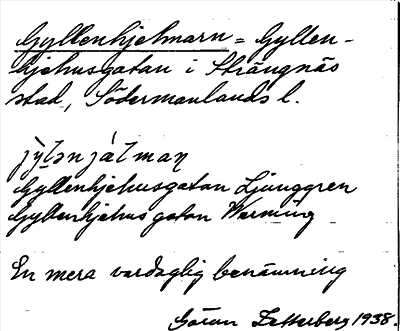 Gyllenhjelmarn = Gyllen-
hjelmsgatan i Strängnäs
stad, Södermanlands l.
jỳlənjálmaɳ
Gyllenhjelmsgatan Ljunggren
Gyllenhjelmsgatan Werning
En mera vardaglig benämning
Göran Zetterberg 1938.